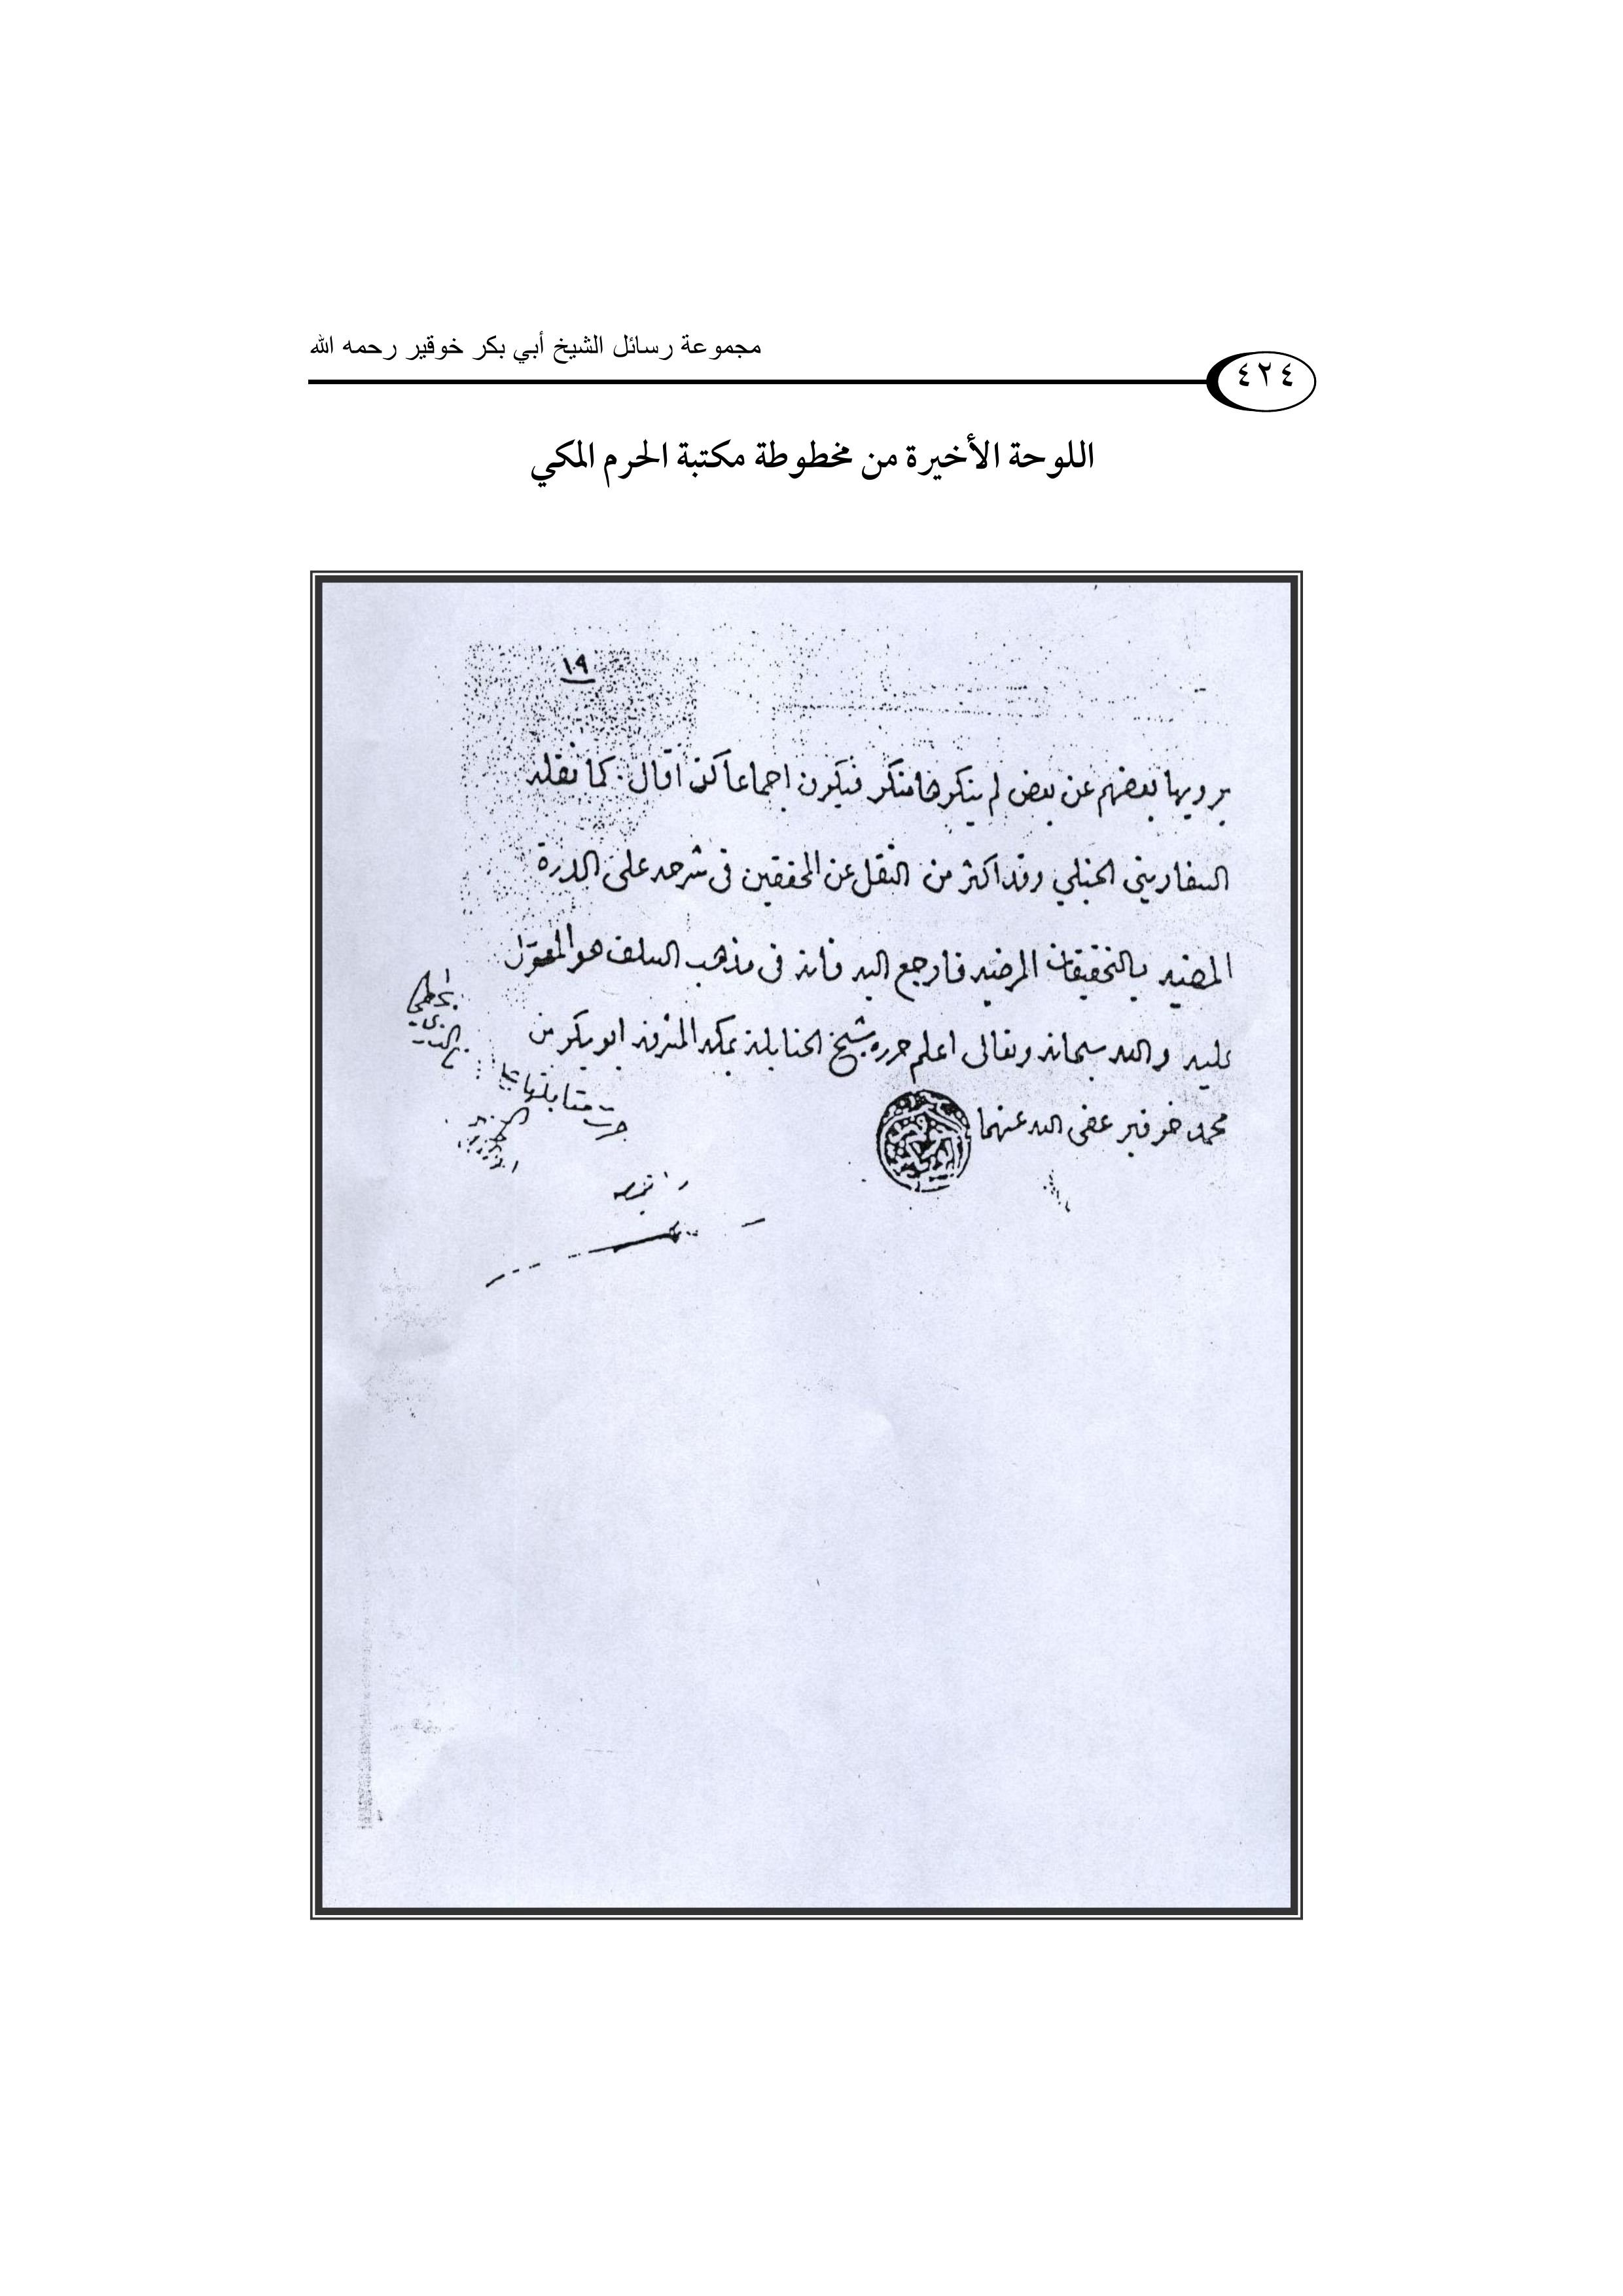 مجموعة رسائل الشيخ أبي بكر خوقير رحمه الله
٤٢٤
اللوحة الأخيرة من مخطوطة مكتبة الحرم المكي
١٩
يرويها بعضهم عن بعض لم ينكرها منكر فيكون اجماعا كذا قال كما نقله
السفاريني الحنبلي وقد اكثر من النقل عن المحققين في شرحه على الدرة
المضيه بالتحقيقات المرضيه فارجع اليه فانه في مذهب السلف هو المعول
عليه والله سبحانه وتعالى اعلم حرره شيخ الحنابلة بمكة المشرفة ابو بكر بن
محمد خوقير عفى الله عنهما
جرت مقابلتها على